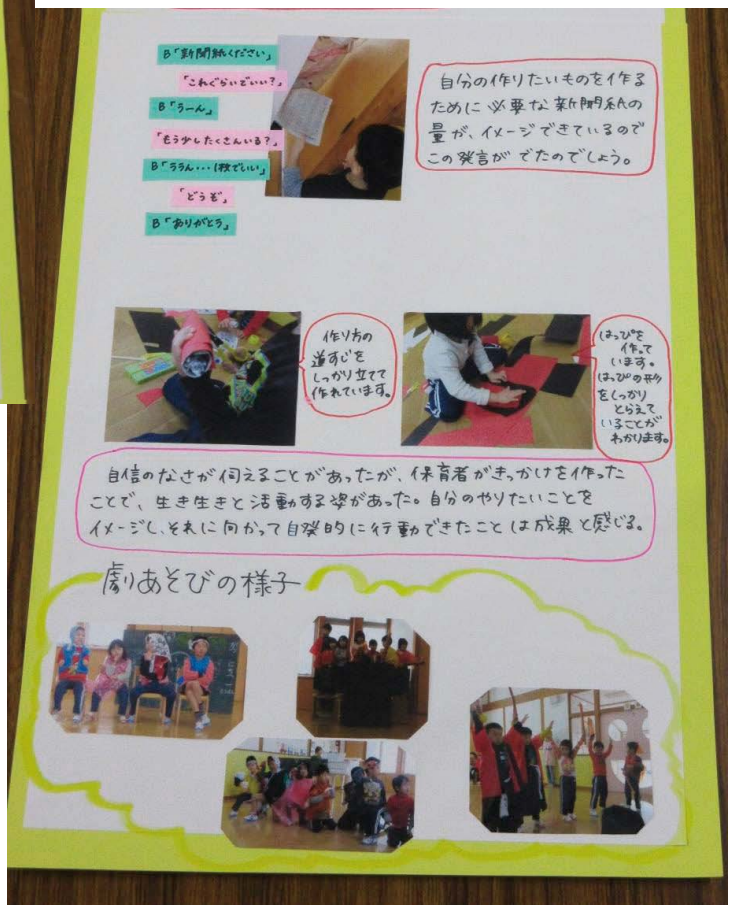 B「新聞紙ください」
「これぐらいでいい？」
B「うーん」
「もう少したくさんいる？」
B「ううん・・・1枚でいい」
「どうぞ」
B「ありがとう」
自分の作りたいものを作る
ために必要な新聞紙の
量が、イメージできているので
この発言がでたのでしょう。
作り方の
道すじを
しっかり立てて
作れています。
はっぴを
作って
います。
はっぴの形
をしっかり
とらえて
いることが
わかります。
自信のなさが伺えることがあったが、保育者がきっかけを作った
ことで、生き生きと活動する姿があった。自分のやりたいことを
イメージし、それに向かって自発的に行動できたことは成果と感じる。
劇あそびの様子